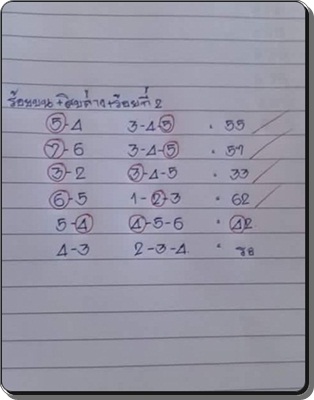 ร้อยบน+สิบล่าง+ร้อยที่2
5-4 3-4-5 = 55
7-6 3-4-5 = 57
3-2 3-4-5 = 33
6-5 1-2-3 = 62
5-4 4-5-6 = 42
4-3 2-3-4 = รอ